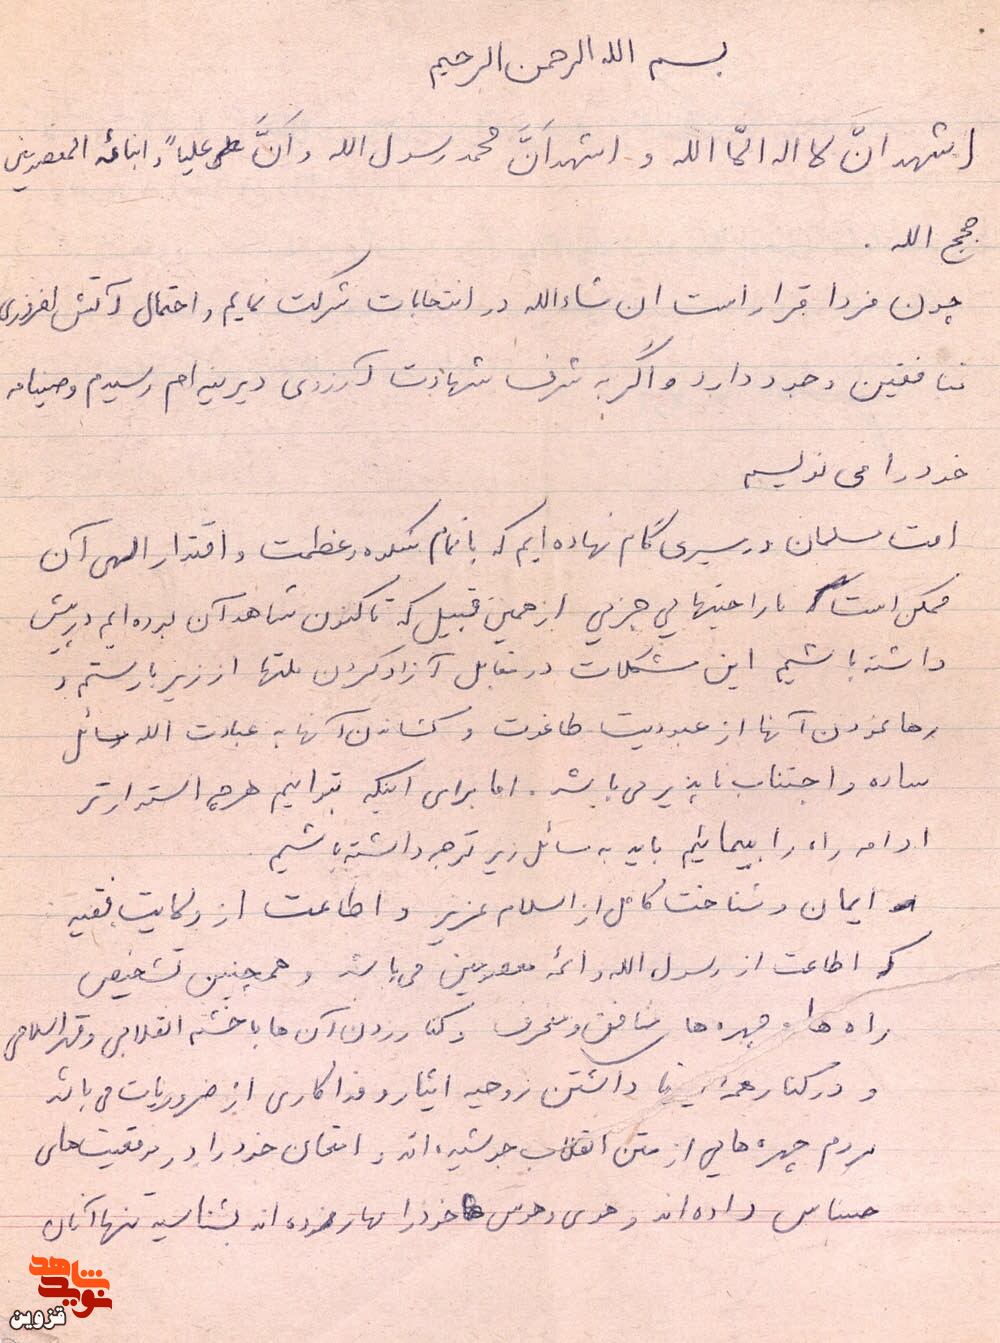 بسم الله الرحمن الرحیم
اشهد انّ لا اله الّا الله و اشهد انَّ محمد رسول الله و اَنَّ علیاً و ابنائه المعصومین
حجج الله .
چون فردا قرار است ان شاءالله در انتخابات شرکت نمایم و احتمال آتش افروزی
منافقین وجود دارد و اگر به شرف شهادت آرزوی دیرینه ام رسیدم وصیتنامه
خود را می نویسم
امت مسلمان در مسیری گام نهاده ایم که با تمام شکوه و عظمت و اقتدار الهی آن
ممکن است ناراحتیهایی جزیی از همین قبیل که تا کنون شاهد آن بوده ایم در پیش
داشته باشیم این مشکلات در مقابل آزاد کردن ملتها از زیر بار ستم و
رها نمودن آنها از عبودیت طاغوت و کشاندن آنها به عبادت الله مسائل
ساده و اجتناب ناپذیر می باشد . اما برای اینکه بتوانیم هرچه استوارتر
ادامه راه را بپیمائیم باید به مسائل زیر توجه داشته باشیم .
ایمان و شناخت کامل از اسلام عزیز و اطاعت از ولایت فقیه
که اطاعت از رسول الله و ائمه معصومین می باشد و همچنین تشخیص
راه ها و چهره ها منافق و منحرف و کنار زدن آن ها با خشم انقلابی و قهر اسلامی
و در کنار همه اینها داشتن روحیه ایثار و فداکاری از ضروریات می باشد
مردم چهره هایی از متن انقلاب جوشیده اند و امتحان خود را در موقعیت های
حساس داده اند و هوی و هوس خود را مهار نموده اند بشناسید تنها آنان
نوید شاهد
قزوین